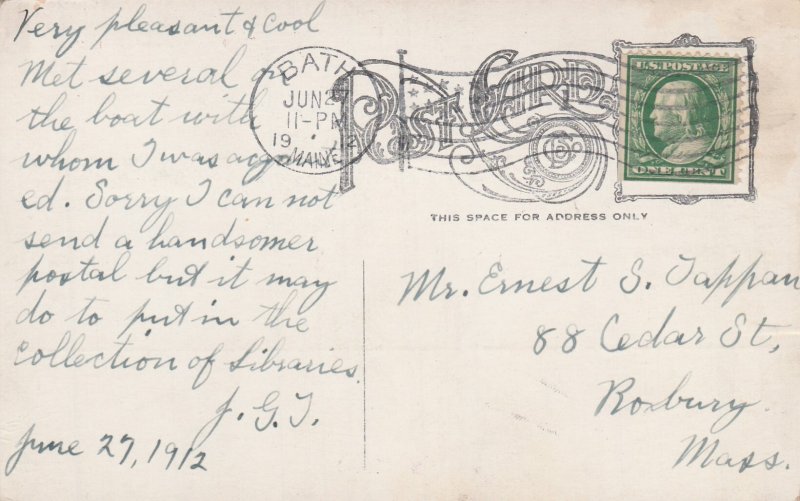 Very pleasant & cool
Met several on
the boat with
whom I was acquaint
ed. Sorry I can not
send a handsomer
postal but it may
do to put in the
collection of Libraries.
J. G. T.
June 27, 1912
BATH
JUN 27
11-PM
19 12
MAINE
POST CARD
U.S. POSTAGE
ONE CENT
THIS SPACE FOR ADDRESS ONLY
Mr. Ernest S. Tappan
88 Cedar St,
Roxbury
Mass.